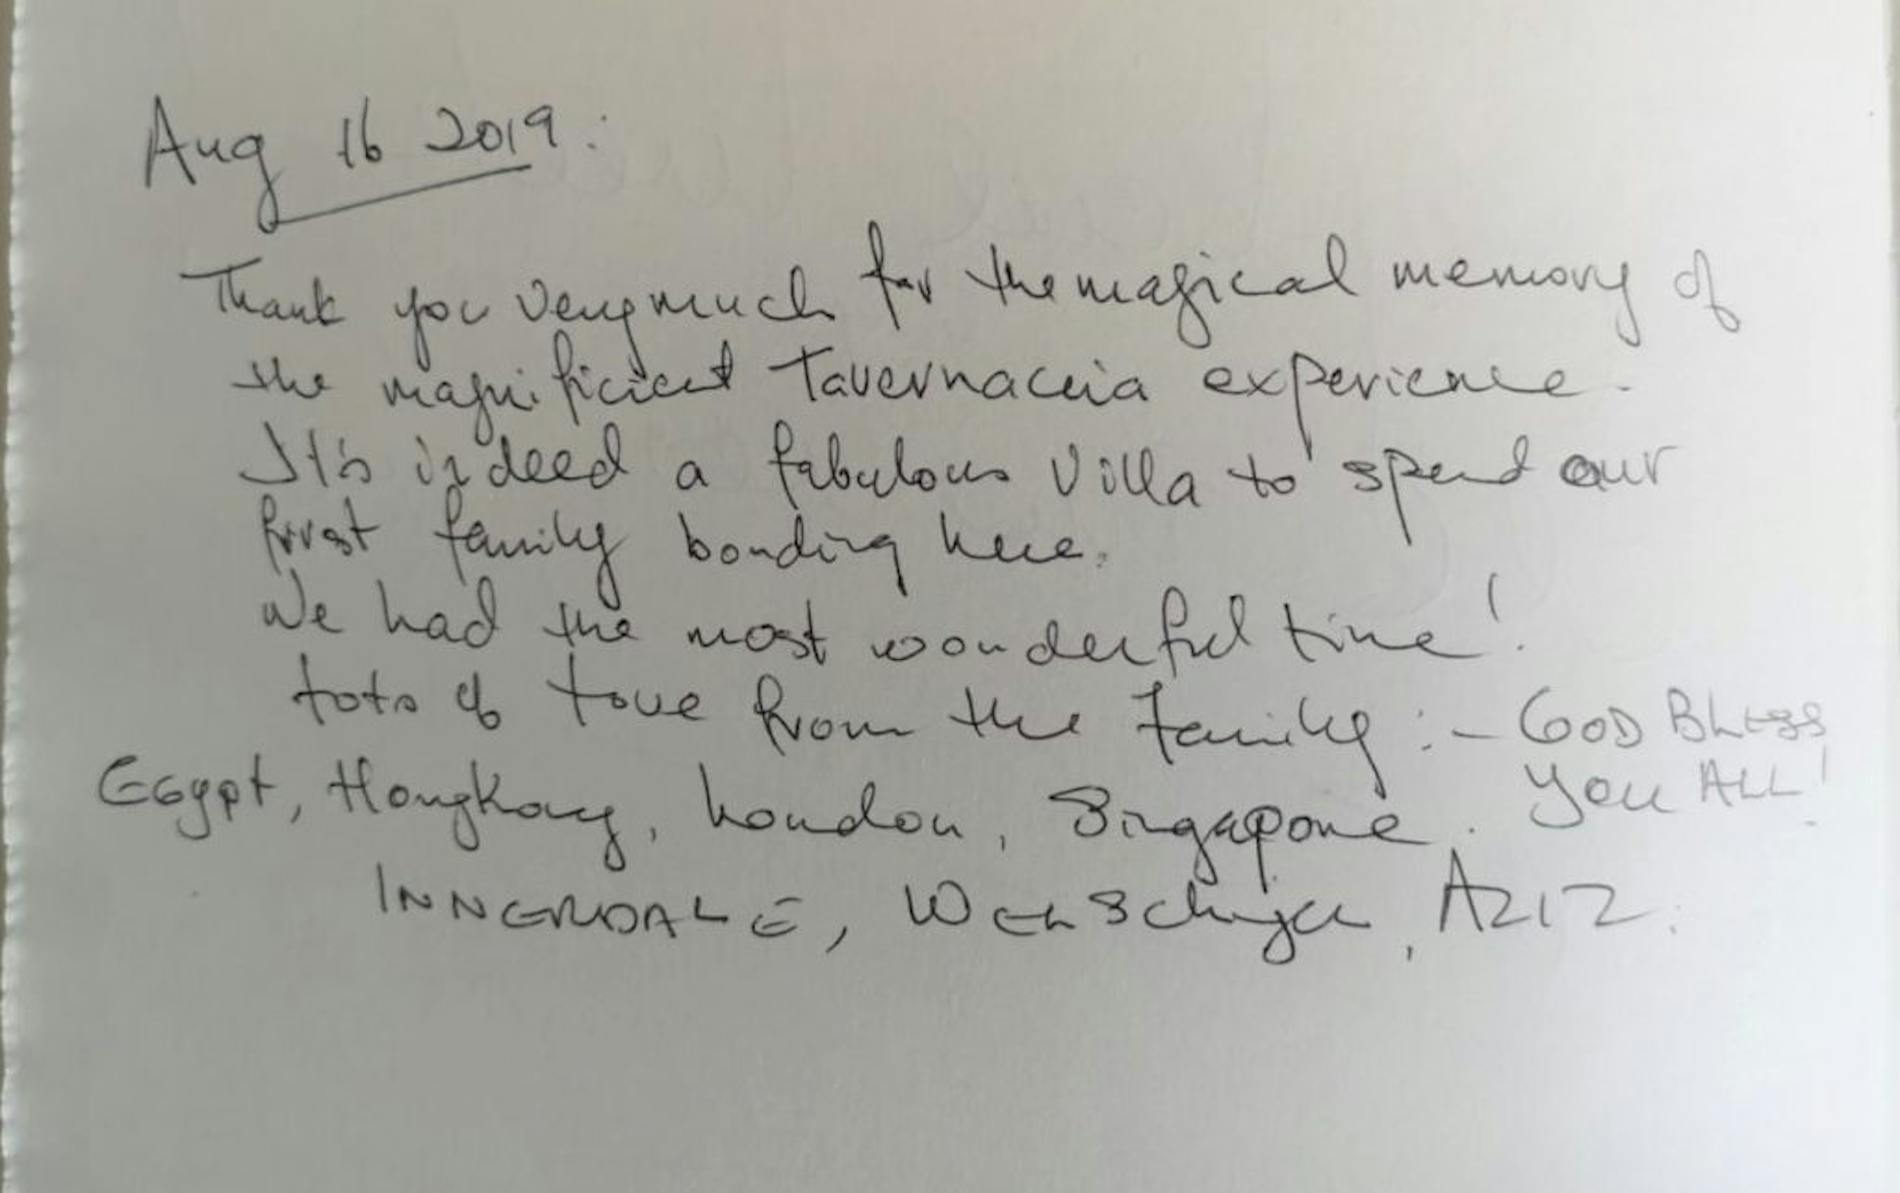 Aug 16 2019:
Thank you very much for the magical memory of
the magnificient Tavernaccia experience.
It's indeed a fabulous Villa to spend our
first family bonding here.
We had the most wonderful time!
Lots of Love from the Family :- GOD BLess
You ALL!
Egypt, HongKong, London, Singapore.
INNERDALE, , AZIZ.